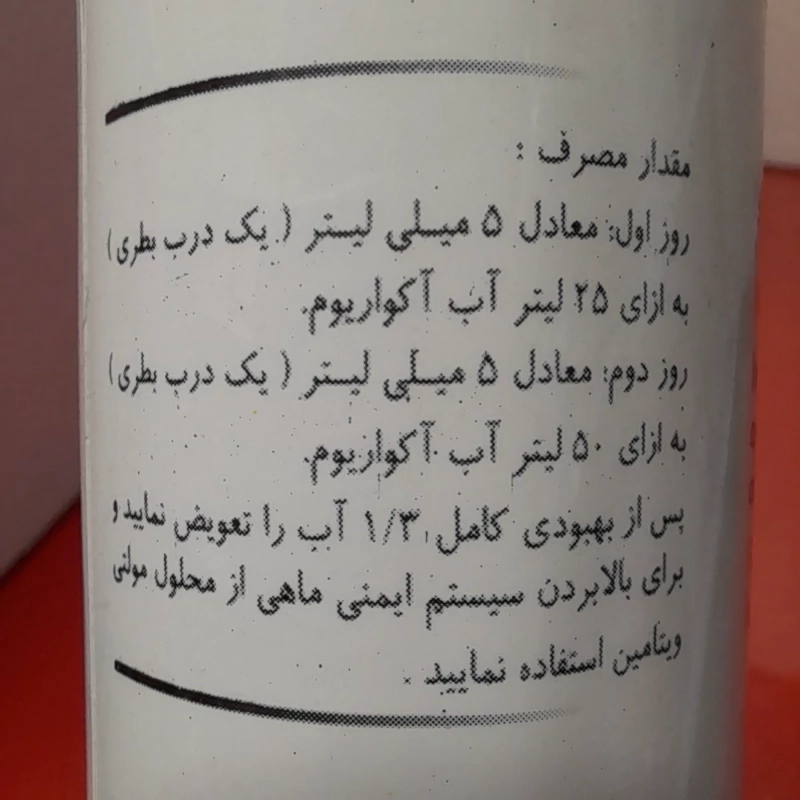 مقدار مصرف :
روز اول: معادل ۵ میلی لیتر ( یک درب بطری )
به ازای ۲۵ لیتر آب آکواریوم.
روز دوم: معادل ۵ میلی لیتر ( یک درب بطری )
به ازای ۵۰ لیتر آب آکواریوم.
پس از بهبودی کامل ۱/۳ آب را تعویض نمایید و
برای بالابردن سیستم ایمنی ماهی از محلول مولتی
ویتامین استفاده نمایید .